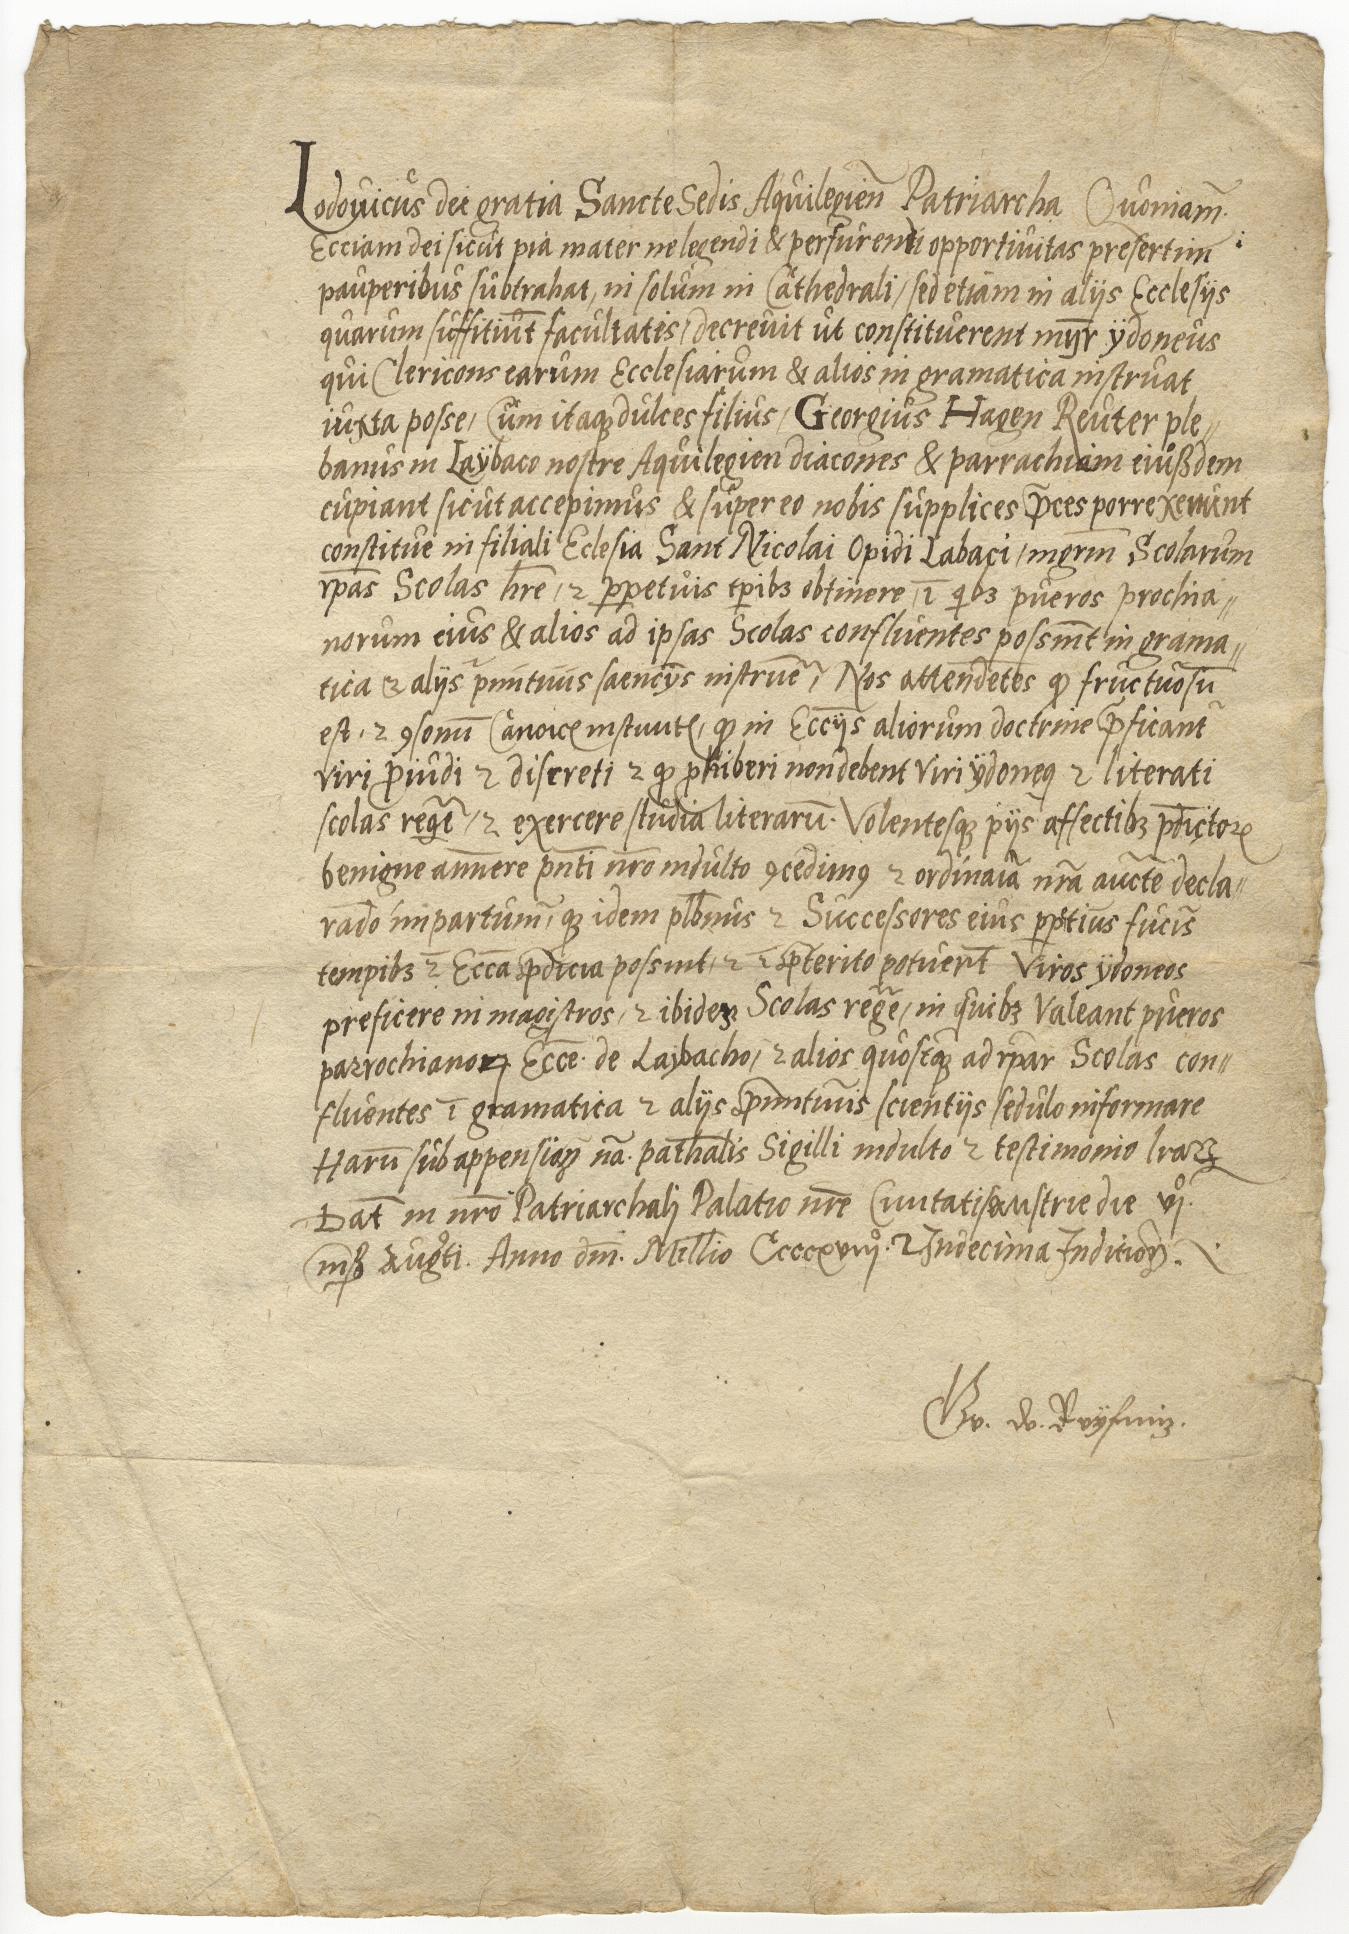 Lodouicus dei gratia Sancte Sedis Aquilegien̄ Patriarcha Quoniam̄.
Ecciam dei sicut pia mater ne legendi & perfurendi opportiuitas presertim
pauperibus subtrahat, in solum in Cathedrali, sed etiam in alijs Ecclesijs
quarum suffitiūt facultatis, decreuit ut constituerent mgr̄ ÿdoneus
qui Clericons earum Ecclesiarum & alios in gramatica instruat
iuxta posse, Cum itaq dulces filius, Georgius Hagen Reuter ple„
banus in Laÿbaco nostre Aquilegien diacones & parrachiam eiußdem
cupiant sicut accepimus & super eo nobis supplices p̄ces porrexerunt
constitue in filiali Eclesia Sant Nicolai Opidi Labaci, mgrm̄ Scolarum
ip̄as Scolas hr̄e, ⁊ ꝑpetuis tp̄ibꝫ obtinere, ī qibꝫ pueros prochia„
norum eius & alios ad ipsas Scolas confluentes possint in grama„
tica & alijs pimituiis saencijs instruē, Nos attendētes ꝙ fructuosū
est, ⁊ ꝯsonū instuutꝭ, ꝙ in Ecc̄ijs aliorum doctrine p̄ficant
viri p̄uidi ⁊ discreti ⁊ ꝙ phiberi non debent viri ÿdoneꝯ ⁊ literati
scolas regē, ⁊ exercere studia literarū. Volentesqꝫ pijs affectibꝫ p̄dictoꝝ
benigne annuere pn̄ti nr̄o indulto ꝯcedimꝯ ⁊ ordinaīa nr̄a auctē decla„
rādo impartimur̄, qꝫ idem plbn̄us ⁊ Successores eius ꝑptius fucis̄
tempibꝫ ī Ecc̄a p̄dicia possint, ⁊ ī p̄terito potuerīt Viros ÿdoneos
preficere in magistros, ⁊ ibideꝫ Scolas regē, in quibꝫ Valeant pueros
parrochianoꝝ Ecc̄e. de Laybacho, ⁊ alios quoscqꝫ ad ip̄ar Scolas con„
fluentes ī gramatica ⁊ alijs p̄imituiis scientijs sedulo informare
Harū sub appensioη n̄a. pathalis Sigilli indulto ⁊ testimonio lr̄aꝝ
Dat̄ in nr̄o Patriarchalj Palatio nr̄e Ciuitatis Austrie die vj°.
mß Augti. Anno dn̄i. Mill̄io Ccccxviij°. Vndecima Indicioη.